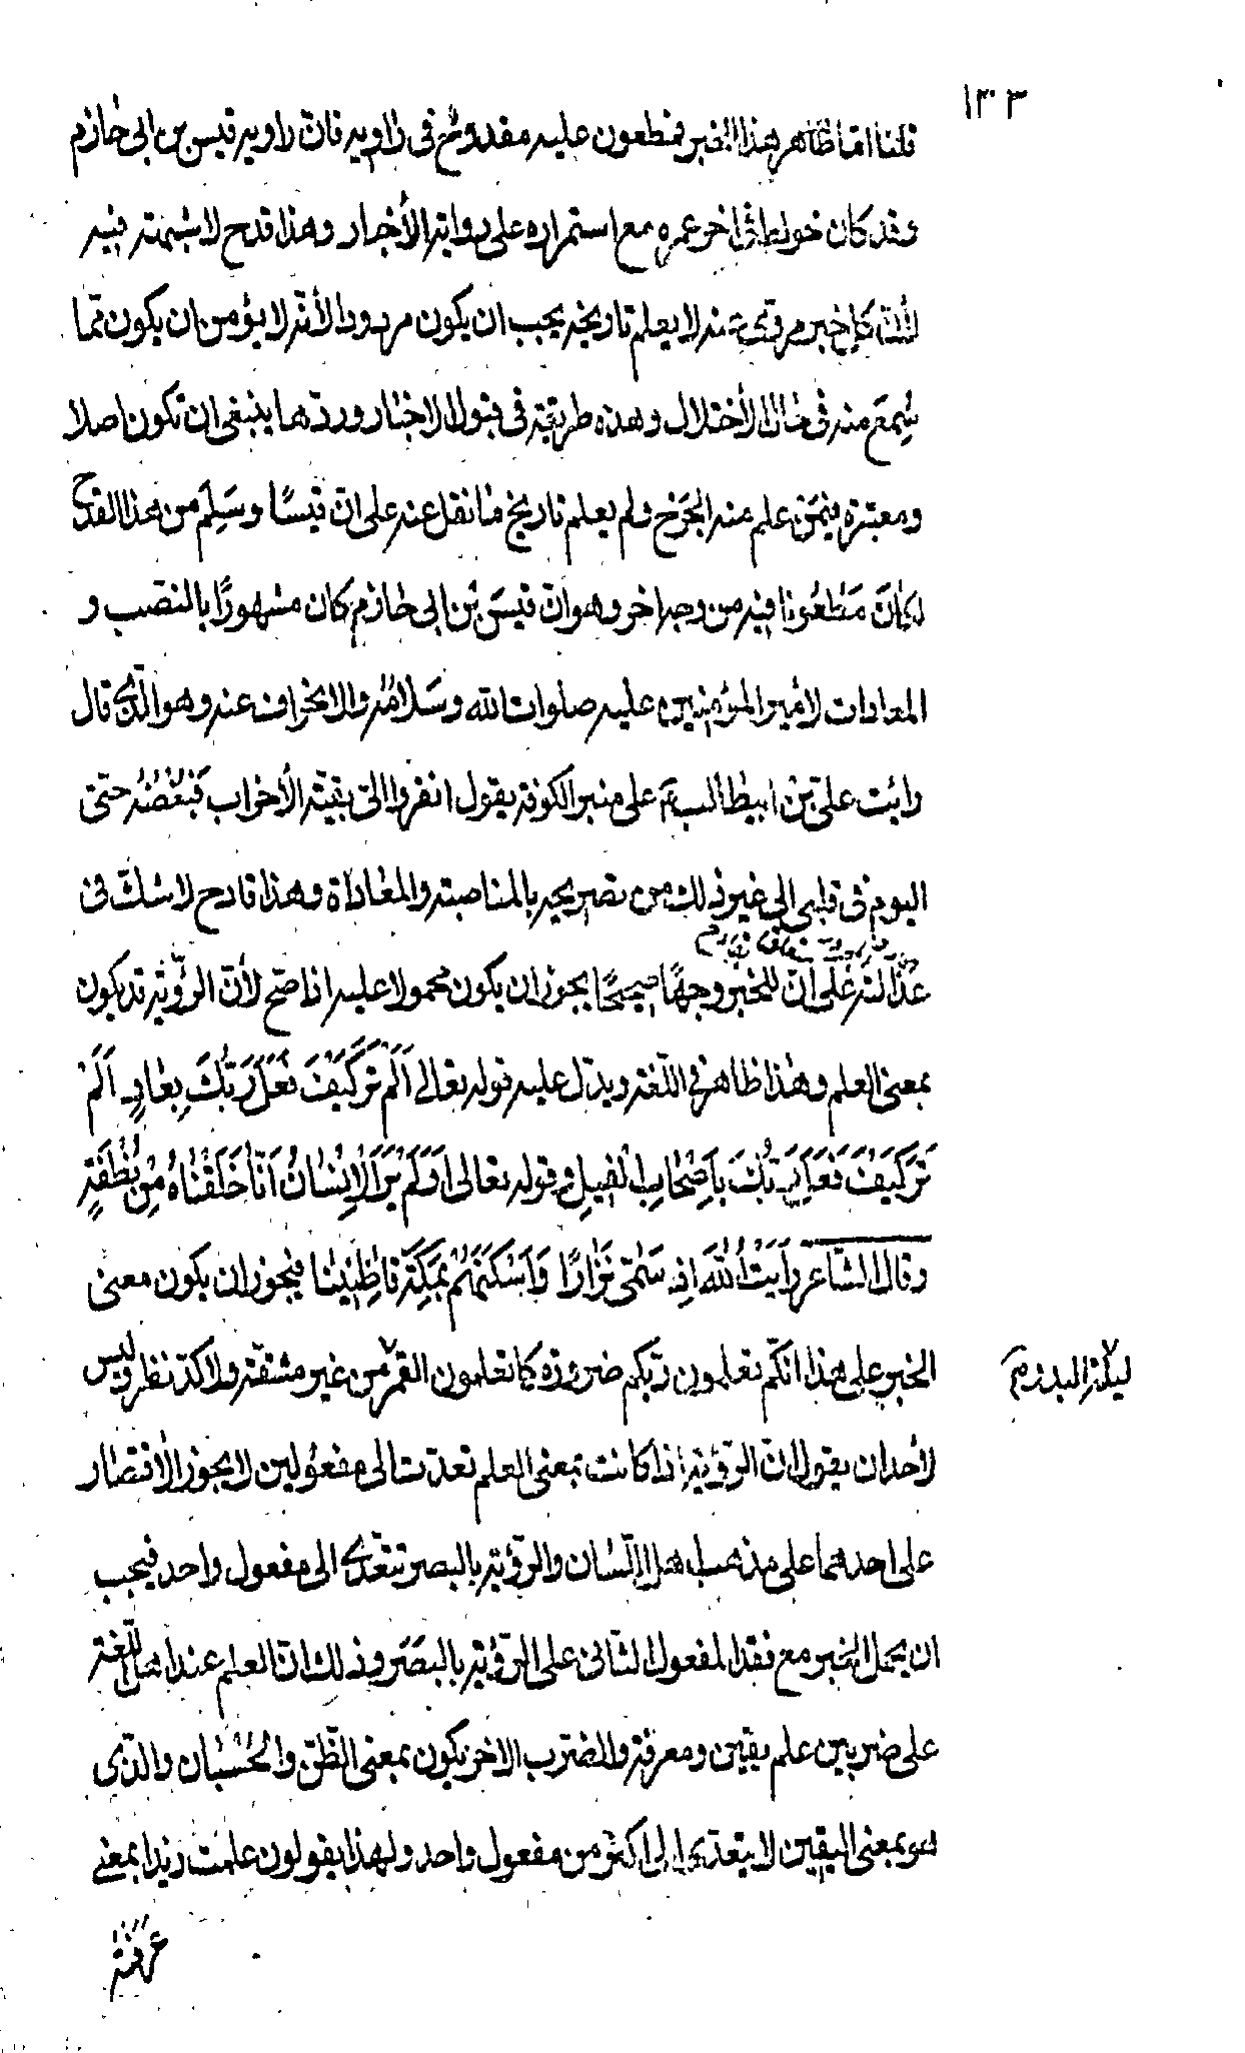 ١٣٠٣
قلنا امّا ظاهر هذا الخبر فمطعون عليه مقدوح فى راويه فانّ راويه قيس بن ابى حازم
وقد كان خولط فى اخر عمره مع استمراره على رواية الأخبار وهذا قدح لا شبهة فيه
لأنّ كل خبر مروىّ عنه لا يعلم تاريخه يجب ان يكون مردودا لأنّه لا يؤمن ان يكون ممّا
سُمِعَ منه فى حال الأختلال وهذه طريقة فى قبول الاخبار وردّها ينبغى ان تكون اصلا
ومعتبرة فيمن علم منه الجرح ولم يعلم تاريخ ما نقل عنه على انّ قيسًا وسَلِمَ من هذا القدح
لكانَ مَطعُونا فيه من وجه اخر وهو انّ قيسَ بن ابى حازم كان مشهورًا بالنصب و
المعادات لأمير المؤمنين عليه صلوات الله وسَلامُه والانحراف عنه وهو الّذى قال
رايت علىّ بن ابيطالب ع على منبر الكوفة يقول انفروا الى بقيّة الأحزاب فبغضُه حتّى
اليوم فى قلبى الى غير ذلك من تصريحه بالمناصبة والمعاداة وهذا قادح لا شكّ فى
عدالته على انّ للخبر وجهًا صحيحًا يجوز ان يكون محمولا عليه اذا صحّ لأنّ الرؤية قد يكون
بمعنى العلم وهذا ظاهر فى اللّغة ويدلّ عليه قوله تعالى اَلَمْ تَرَ كَيْفَ فَعَلَ رَبُّكَ بِعَادٍ اَلَمْ
تَرَ كَيْفَ فَعَلَ رَبُّكَ بِاَصْحَابِ الْفِيلِ وقوله تعالى اَوَلَمْ يَرَ الْاِنْسَانُ اَنَّا خَلَقْنَاهُ مِنْ نُطْفَةٍ
وقال الشّاعر رَأَيْتُ اللهَ اِذْ سَمّى نَزَارًا وَاَسْكَنَهُمْ بِمَكَّةَ قَاطِنِيْنَا فيجوز ان يكون معنى
الخبر على هذا انكّم تعلمون ربّكم ضرورة كما تعلمون القمر من غير مشقّة ولا كدّ نظر وليس
ليلة البدر
لأحد ان يقول انّ الرؤية اذا كانت بمعنى العلم تعدّت الى مفعولين لا يجوز الأقتصار
على احدهما على مذهب اهل اللّسان والرؤية بالبصر تتعدّى الى مفعول واحد فيجب
ان يحمل الخبر مع فقد المفعول الثانى على الرؤية بالبصَر وذلك انّ العلم عند اهل اللّغة
على ضربين علم يقين ومعرفة والضرب الاخر يكون بمعنى الظّنّ والحُسْبان والّذى
هو بمعنى اليقين لا يتعدّى الى اكثر من مفعول واحد ولهذا يقولون علمت زيدا بمعنى
عرفته